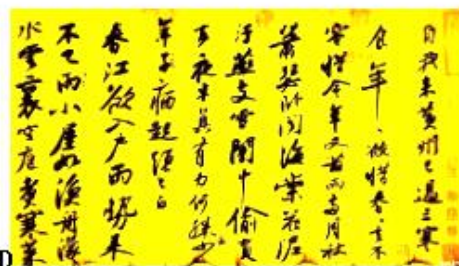 自我來黃州已過三寒
食年〻欲惜春〻去不
容惜今年又苦雨兩月秋
蕭瑟卧聞海棠花泥
汙燕支雪闇中偷負
去夜半真有力何殊少
年子病起頭已白
春江欲入戶雨勢來
不已雨小屋如漁舟濛
水雲裏空庖煮寒菜
D